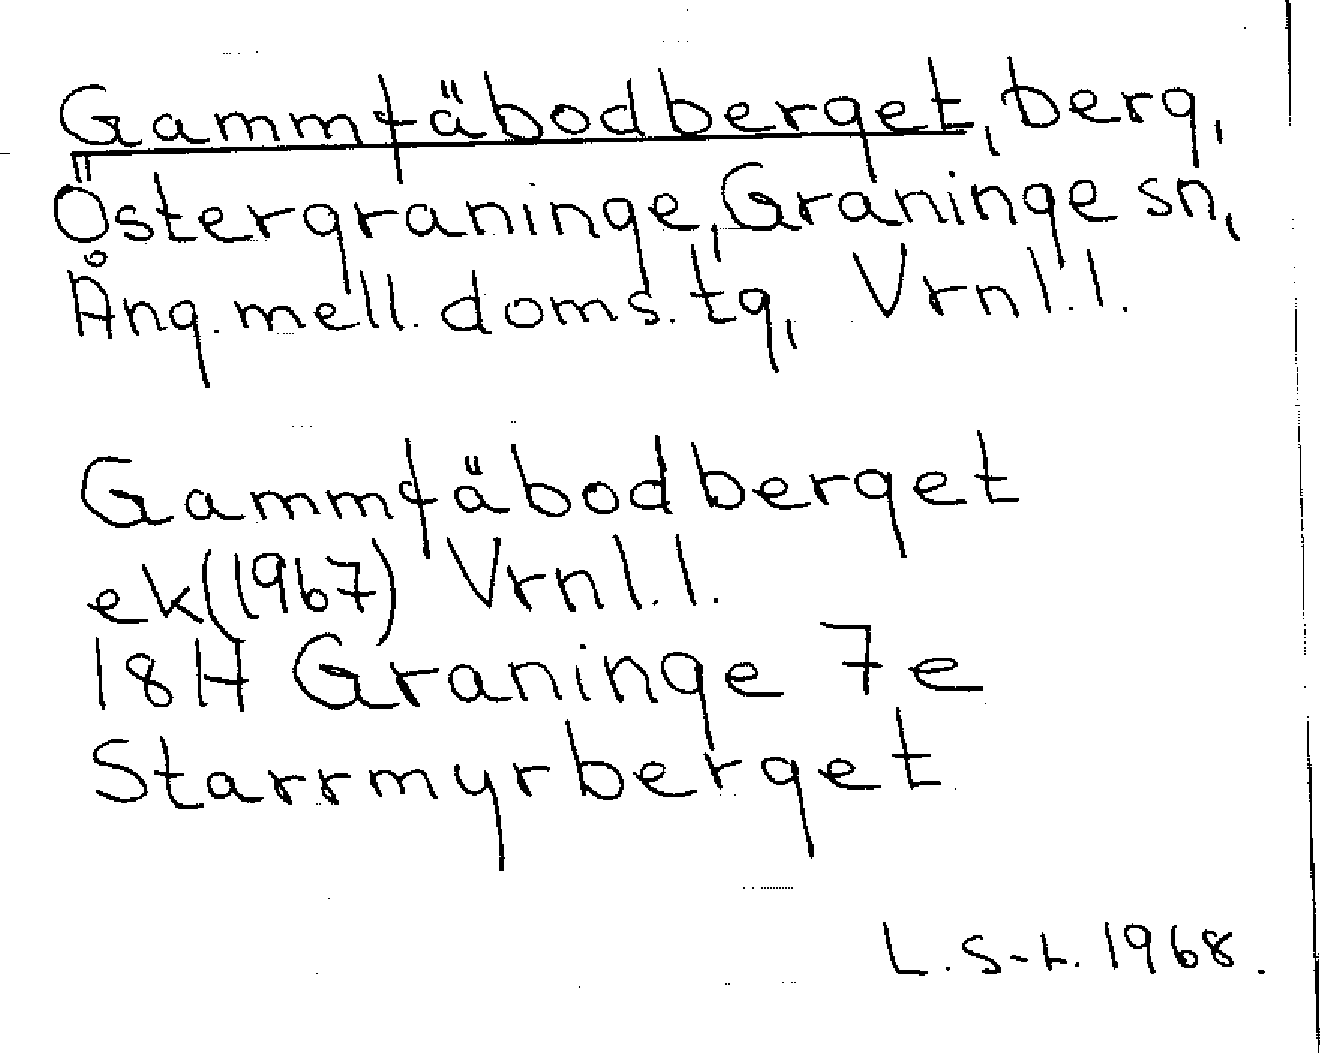 Gammfäbodberget, berg,
Östergraninge, Graninge sn,
Ång. mell. doms. tg, Vrnl.l.
Gammfäbodberget
ek(1967) Vrnl.l.
18H Graninge 7e
Starrmyrberget
L.S-L. 1968.